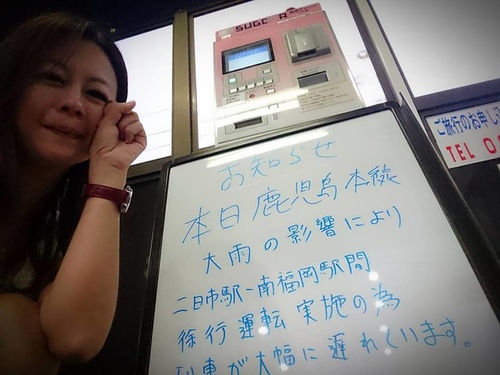 SUGOCA
お知らせ
本日鹿児島本線
大雨の影響により
二日市駅~南福岡駅間
徐行運転実施の為
列車が大幅に遅れています。
ご旅行のお申し
TEL 0